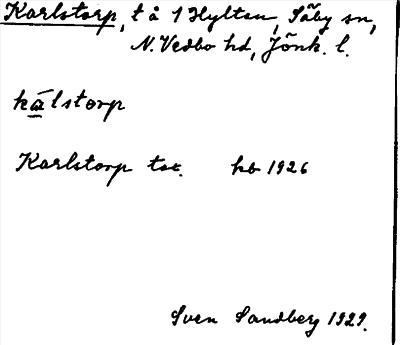 Karlstorp, t å 1 Hylten, Säby sn,
N. Vedbo hd, Jönk. l.
kálstorp
Karlstorp tot. hb 1926
Sven Sandberg 1929.